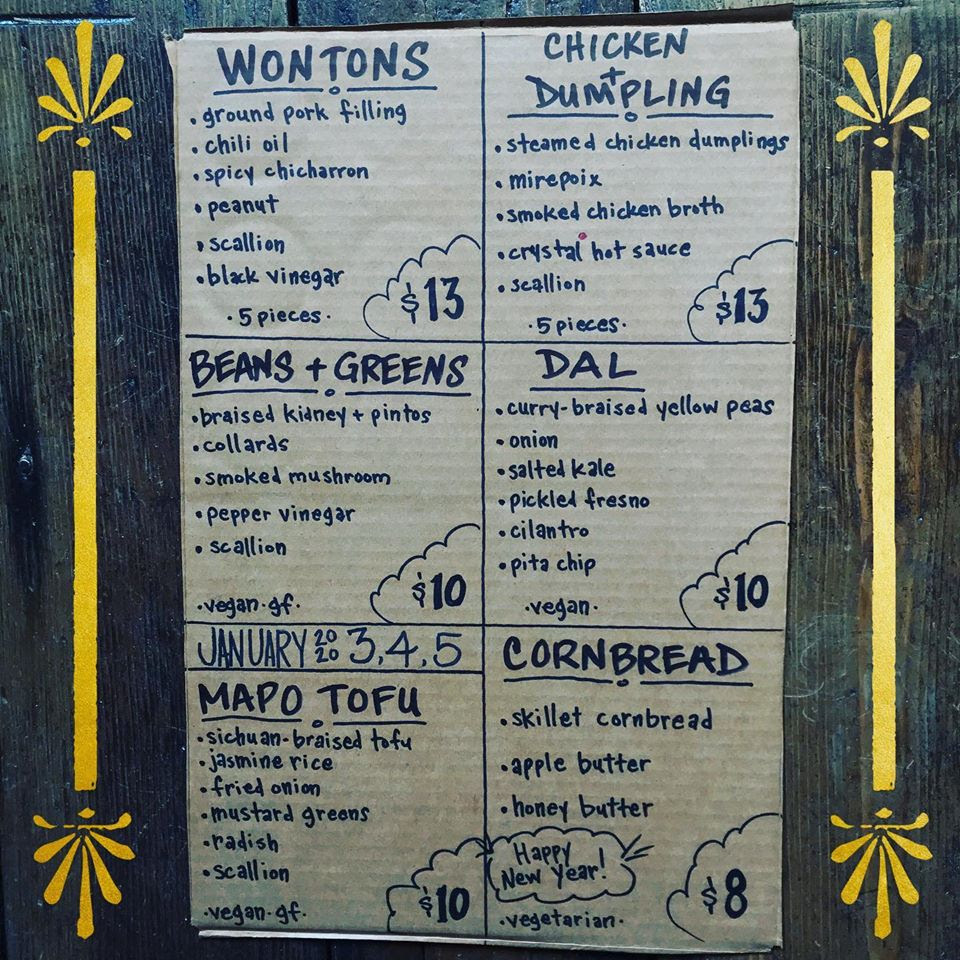 WONTONS
• ground pork filling
• chili oil
• spicy chicharron
• peanut
• scallion
• black vinegar
· 5 pieces ·
$13
CHICKEN
+
DUMPLING
• steamed chicken dumplings
• mirepoix
• smoked chicken broth
• crystal hot sauce
• scallion
· 5 pieces ·
$13
BEANS + GREENS
• braised kidney + pintos
• collards
• smoked mushroom
• pepper vinegar
• scallion
· vegan · gf ·
$10
DAL
• curry-braised yellow peas
• onion
• salted kale
• pickled fresno
• cilantro
• pita chip
· vegan ·
$10
JANUARY 2020 3, 4, 5
MAPO TOFU
• sichuan-braised tofu
• jasmine rice
• fried onion
• mustard greens
• radish
• scallion
· vegan · gf ·
$10
CORNBREAD
• skillet cornbread
• apple butter
• honey butter
Happy
New Year!
· vegetarian ·
$8